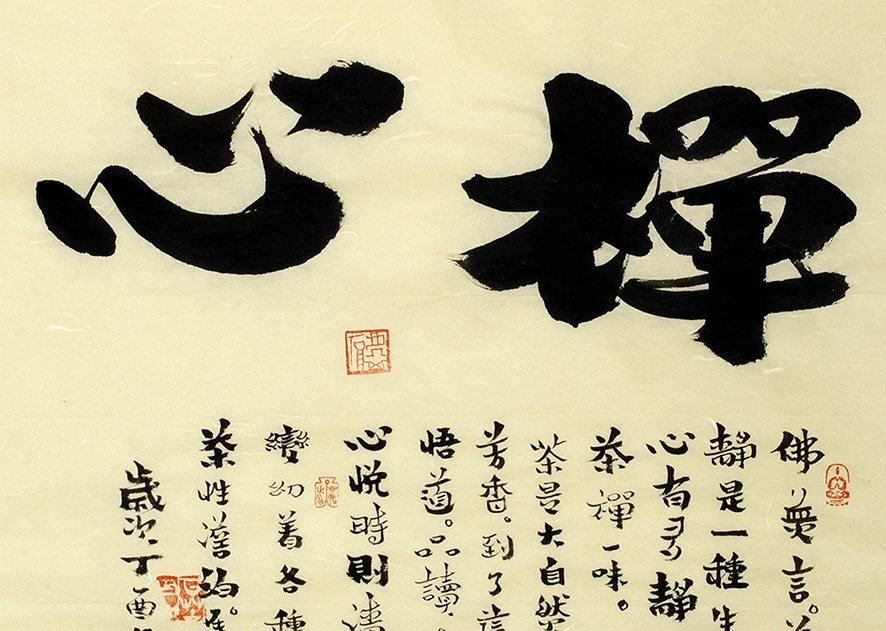 禪心
佛門無言。
靜是一種生
心有多靜
茶禪一味。
茶是大自然
芳香。到了這
悟道。品讀
心悅時則清
變幻着各種
茶性
歲次丁酉